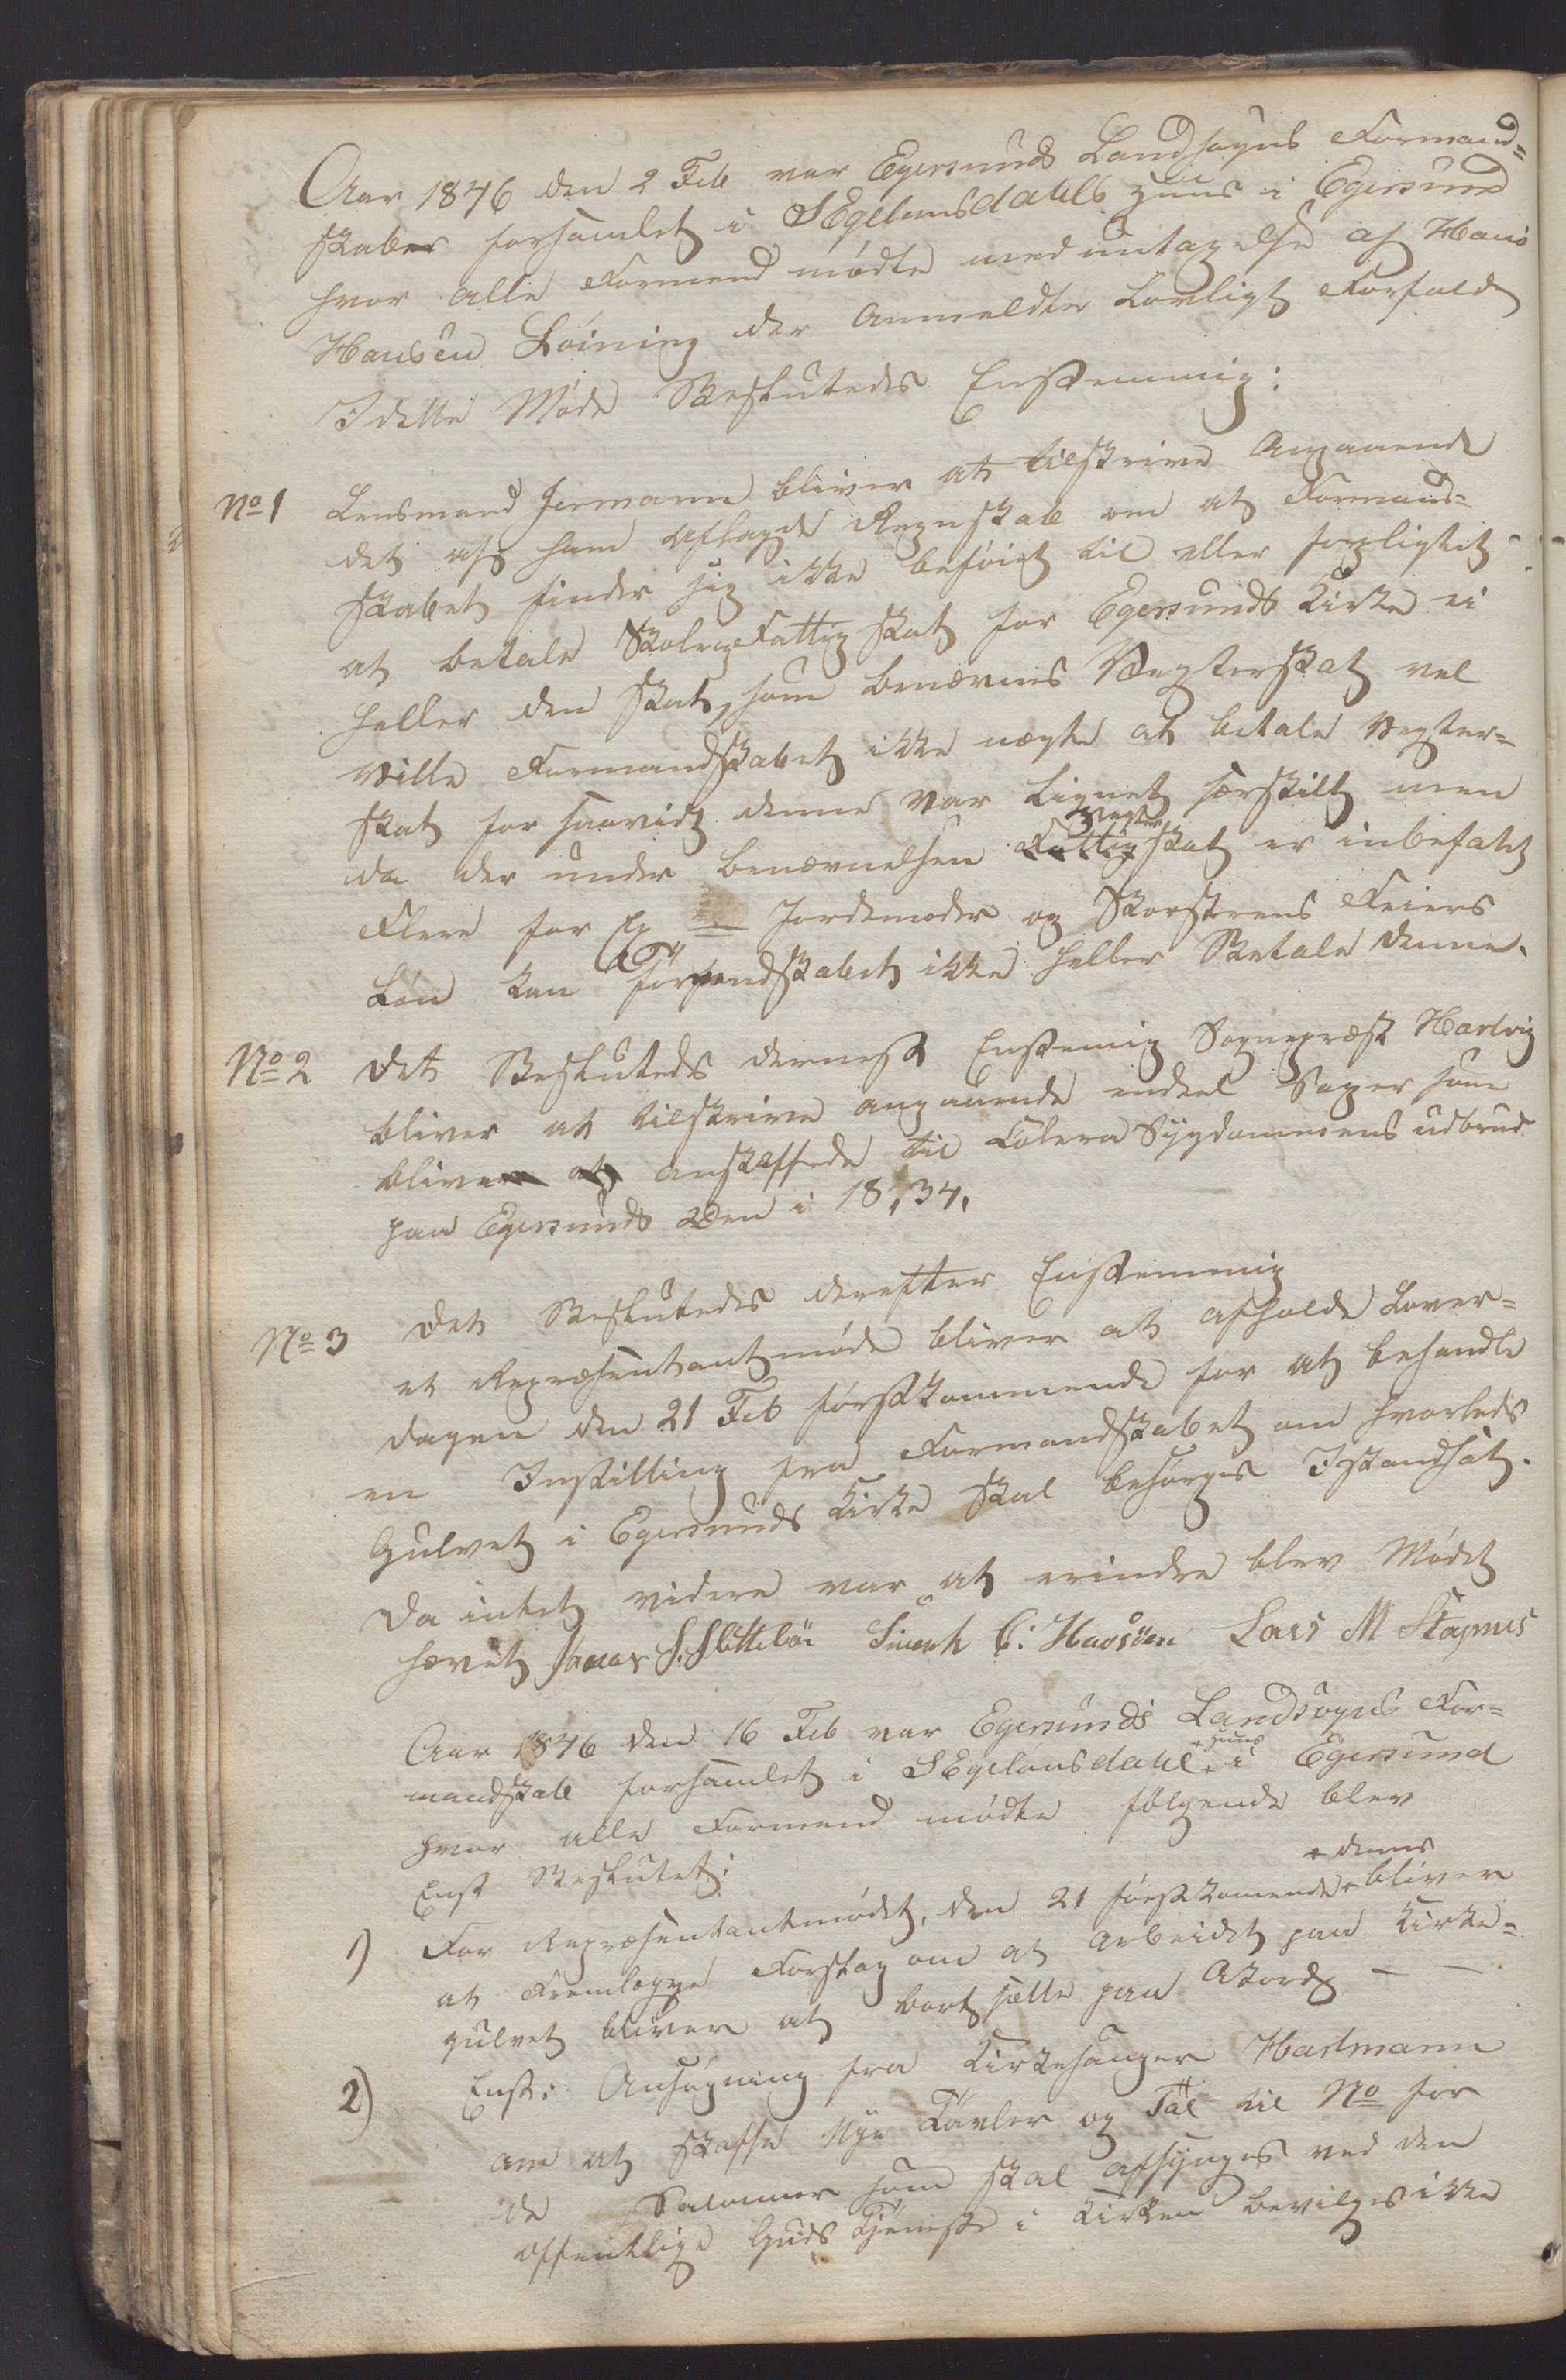 Aar 1846 den 2 Feb var Egersunds Landsogns Formand=
skaber forsamlet i S Egelansdahls Huus i Egersund
hvor alle Formend mødte med untagelse af Hans
Hansen Løining der Anmeldte Lovligt Forfald
I dette Møde Besluttedes Enstemmig:
No 1 Lensmand Jermann bliver at tilskrive Angaaende
det af ham aflagde Regnskab om at Formand=
skabet finder sig ikke beføiet til eller forpligtet
at betale Skole og Fattig skat for Egersunds Kirke ei
heller den Skat, som benævnes Vægterskat vel
ville Formandskabet ikke nægte at betale Vegter=
skat for saavidt denne var Lignet særskilt men
da der under benævnelsen Fattig Vægter skat er inbefatet
Flere for Ex Jordemoder og Skorstens Feiers
Løn kan Formendskabet ikke heller Betale denne.
No 2 Det Besluttedes dernest Enstemig Sognepræst Hartvig
bliver at tilskrive angaaende endeel Sager som
bliver at anskaffede til Colera Sygdommens udbrud
paa Egersunds Øen i 1834.
No 3 Det Besluttedes derefter Enstemmig
et Repræsentantmøde bliver at afholde Løver=
dagen den 21 Feb førstkommende for at behandle
en Instilling fra Formandskabet om hvorledes
Gulvet i Egersunds Kirke skal besørges Istandsat.
Da intet videre var at erindre blev Mødet
hævet Jonas S. Slettebøe Sivert C. Havsøen Lars M Stapnes
Aar 1846 den 16 Feb var Egersunds Landsogns For=
mandskab forsamlet i S Egelansdahl + Huus + i Egersund
hvor alle Formend mødte følgende blev
Enst Besluttet:
1) For Repræsentantmødet, den 21 førstkomende + dennes + bliver
at Fremlægge Forslag om at Arbeidet paa Kirke=
gulvet bliver at bortsætte paa Akord —
2) Enst: Ansøgning fra Kirkesanger Hartmann
om at skaffe Nye Tavler og Tal til No for
de Salmer som skal afsynges ved den
offentlige Guds Tjeneste i Kirken bevilges ikke